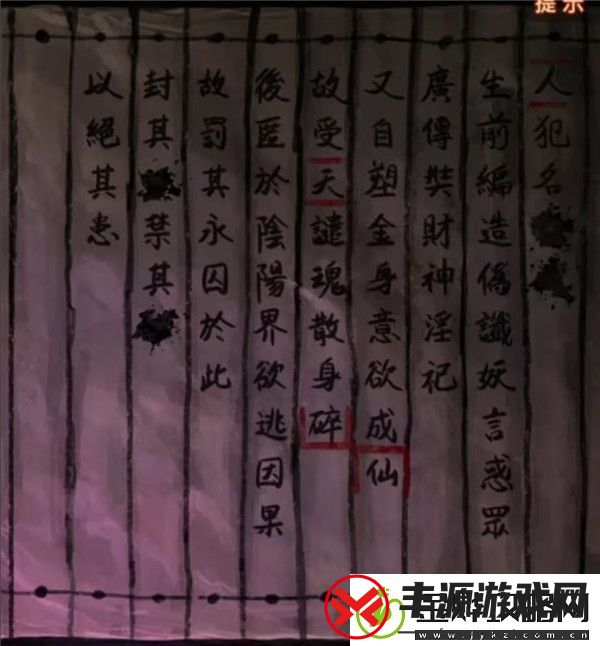 提示
人犯名
生前編造偽讖妖言惑眾
廣傳奘財神淫祀
又自塑金身意欲成仙
故受天譴魂散身碎
後匿於陰陽界欲逃因果
故罰其永囚於此
封其禁其
以絕其患
丰源游戏网
www.jykz.com.cn